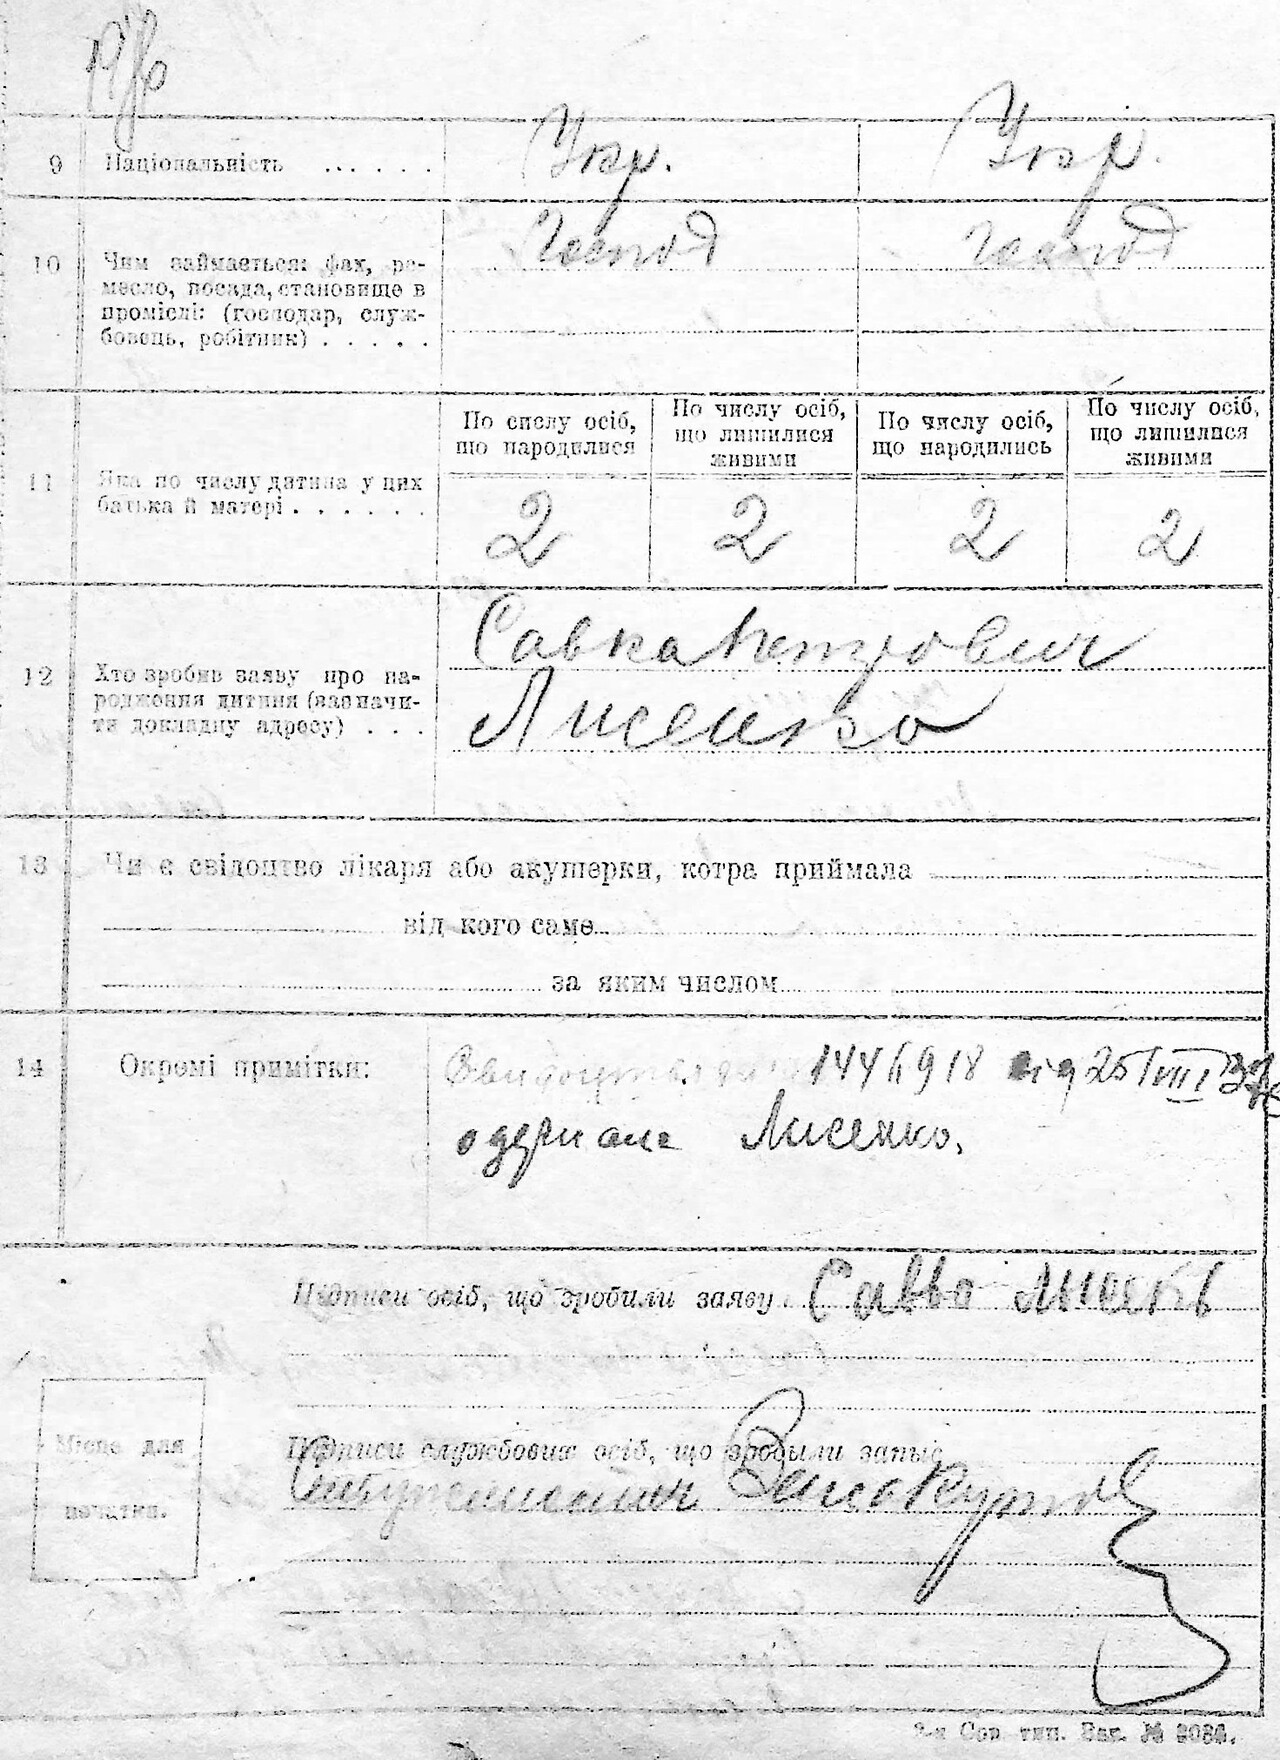 9 Національність . . . . . . Укр. Укр.
10 Чим займається: фах, ре-
месло, посада, становище в
проміслі: (господар, служ-
бовець, робітник) . . . . .
Господ Господ
11 Яка по числу дитина у цих
батька й матері . . . . . .
По числу осіб,
що народилися
По числу осіб,
що лишилися
живими
По числу осіб,
що народились
По числу осіб,
що лишилися
живими
2 2 2 2
12 Хто зробив заяву про на-
родження дитини (зазначи-
ти докладну адресу) . . .
Савка Петрович
Лисенко
13 Чи є свідоцтво лікаря або акушерки, котра приймала
від кого саме
за яким числом
14 Окремі примітки:
144 6918 від 25/VIII 32
одержав Лисенко.
Підписи осіб, що зробили заяву Савво
Місце для
печатки.
Підписи службових осіб, що зробыли запис
2-я Сов. тип. Зак. №